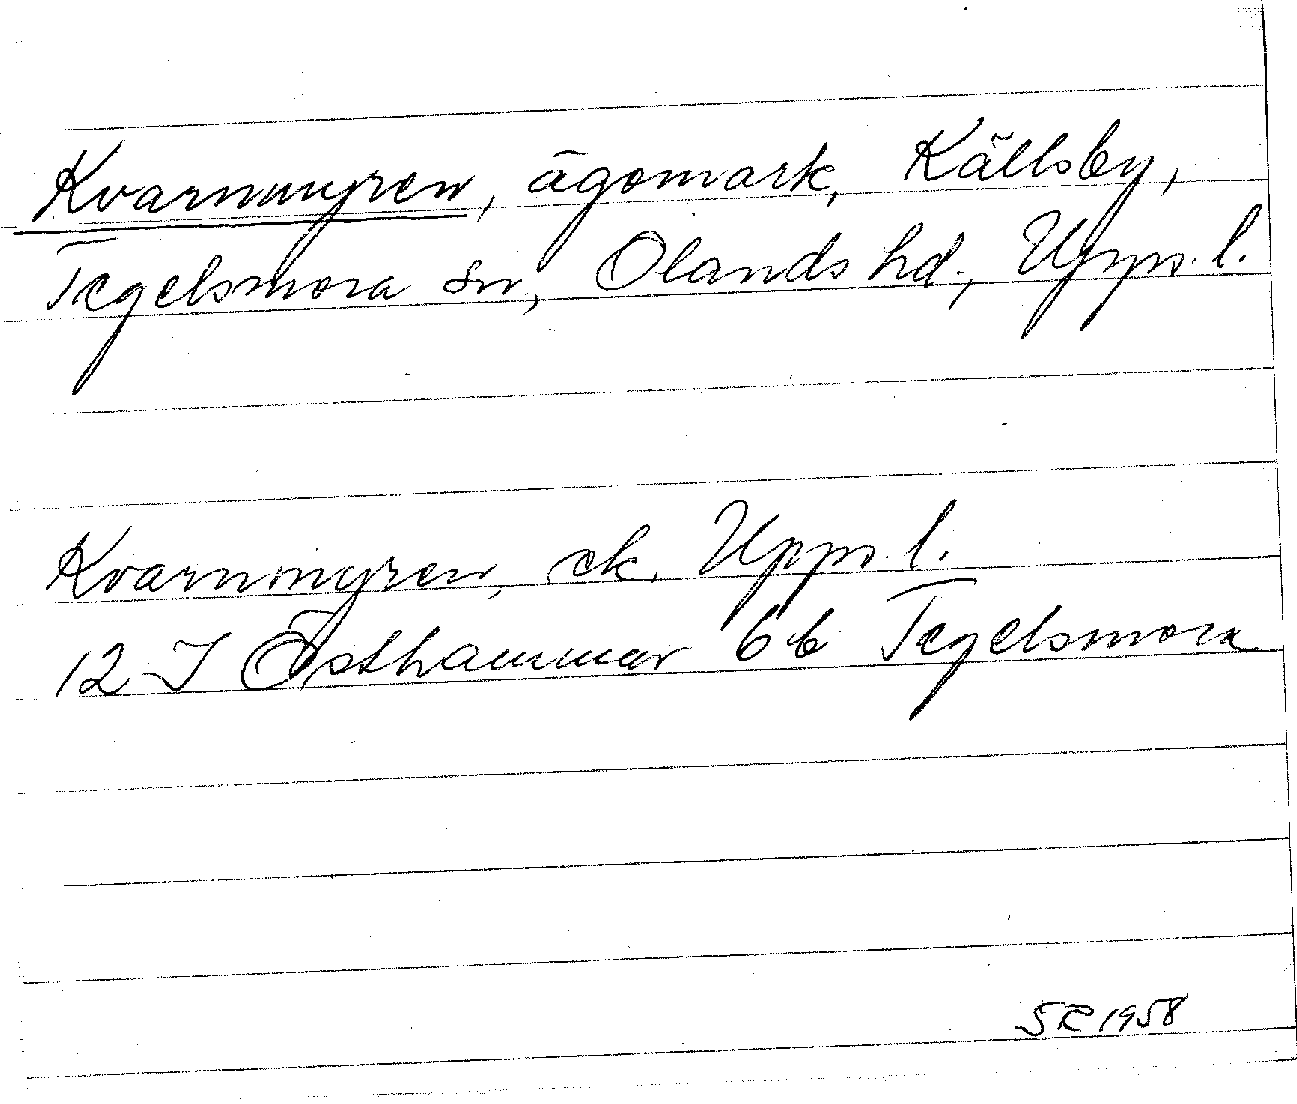 Kvarnmyren, ägomark, Källsby,
Tegelsmora sn, Olands hd., Upps. l.
Kvarnmyren, ek. Upps. l.
12 I Östhammar 6b Tegelsmora
SR 1958